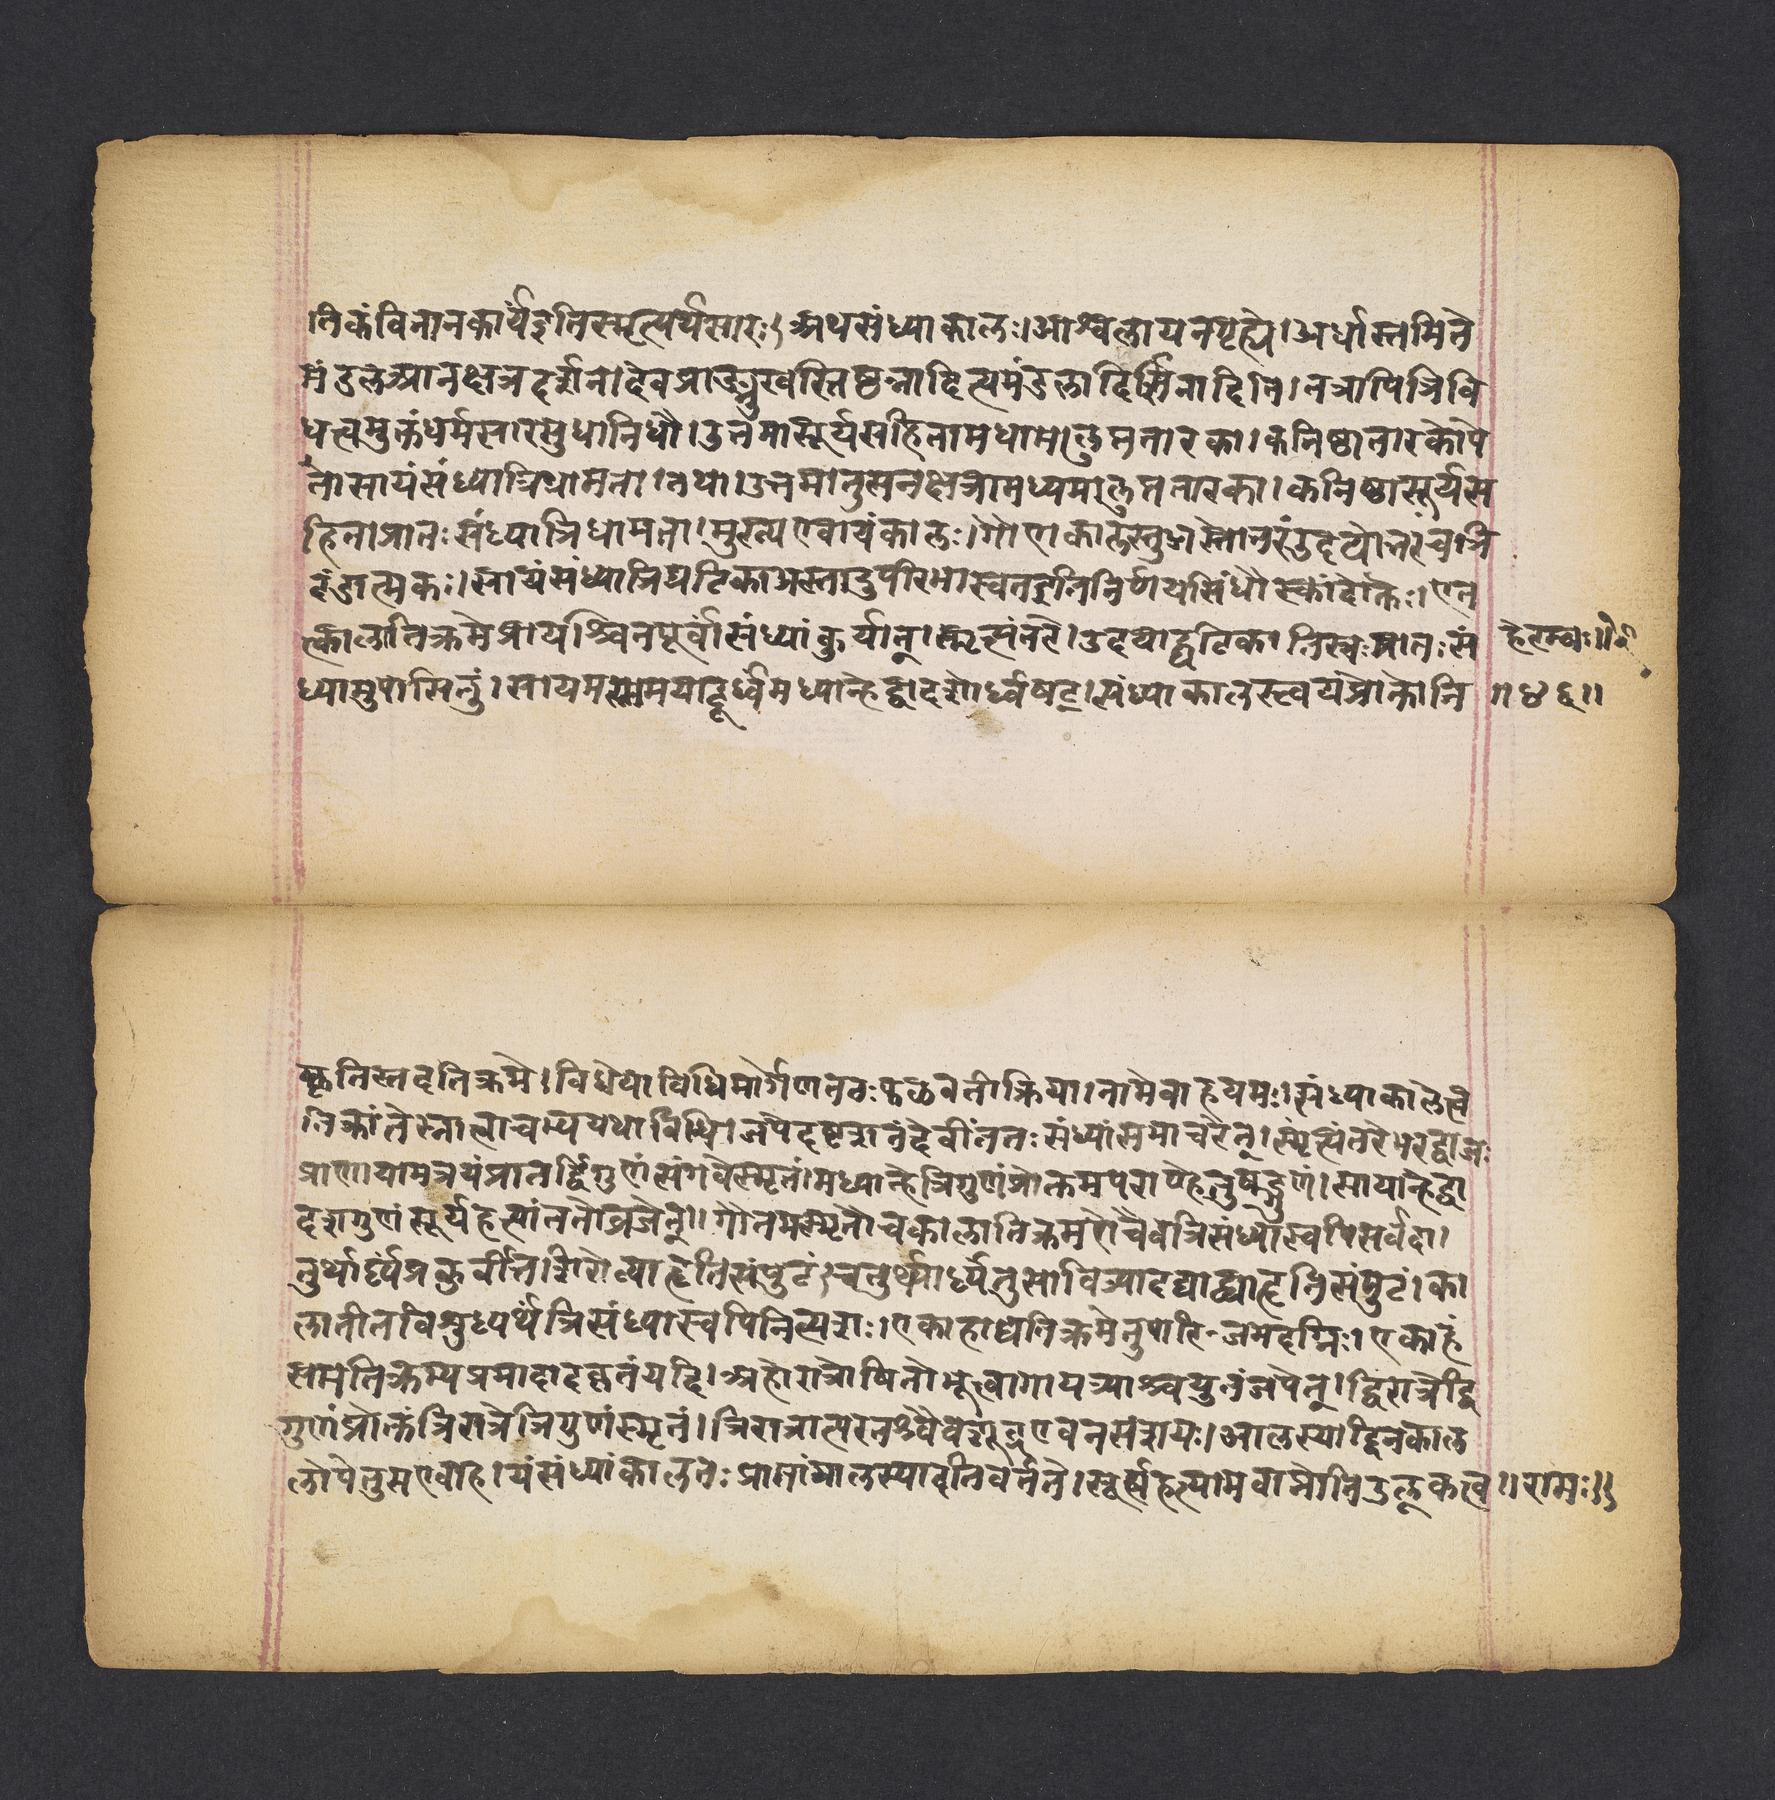 तिकं विना न कार्यं इति स्मृत्यर्थसारः। अथ संध्याकालः। आश्वलायनगृह्ये। अर्धास्तमिते
मंडल आ नक्षत्रदर्शनादेव प्राङ्मुखस्तिष्ठन्नादित्यमंडलादर्शनादिति। तत्रापि त्रिवि
धत्वमुक्तं धर्मसारसुधानिधौ। उत्तमा सूर्यसहिता मध्यमा लुप्ततारका। कनिष्ठा तारकोपे
ता सायंसंध्या त्रिधा मता। तथा। उत्तमा तु सनक्षत्रा मध्यमा लुप्ततारका। कनिष्ठा सूर्यस
हिता प्रातःसंध्या त्रिधा मता। मुख्य एवायं कालः। गौणकालस्तु
सायंसंध्या त्रिघटिका अस्तादुपरि भास्वत इति निर्णयसिंधौ स्कांदोक्तः। एत
त्कालातिक्रमे प्रायश्चित्तपूर्वां संध्यां कुर्यात्। स्मृत्यंतरे। उदयाद्घटिका तिस्रः प्रातःसं
ध्यामुपासितुं। सायमस्तमयादूर्ध्वं मध्यान्हे द्वादशोर्ध्व षट्। संध्याकालस्त्वयं प्रोक्तो नि
हेरम्बः॥
॥४६॥
ष्कृतिस्तदतिक्रमे। विधेया विधिमार्गेण ततः फळवती क्रिया। तामेवाह यमः। संध्याकाले त्व
तिक्रांते स्नात्वाचम्य यथाविधि। जपेदष्टशतं देवीं ततः संध्यां समाचरेत्। स्मृत्यंतरे भरद्वाजः
प्राणायामत्रयं प्रातर्द्विगुणं संगवे स्मृतं। मध्यान्हे त्रिगुणं प्रोक्तमपराण्हे तु षड्गुणं। सायान्हे द्वा
दशगुणं सूर्यहत्यां ततो व्रजेत्॥ गौतमस्मृतौ च कालातिक्रमणे चैव त्रिसंध्यास्वपि सर्वदा।
तुर्थार्घ्यं प्रकुर्वीत। शिरो व्याहृतिसंपुटं। चतुर्थार्घ्यं तु सावित्र्या दद्याद्व्याहृतिसंपुटं। का
लातीतविशुध्यर्थं त्रिसंध्यास्वपि नित्यशः। एकाहाद्यतिक्रमे तु जमदग्निः। एकाहं
समतिक्रम्य प्रमादादकृतं यदि। अहोरात्रोषितो भूत्वा गायत्र्याश्चायुतं जपेत्। द्विरात्रे द्वि
गुणं प्रोक्तं त्रिरात्रे त्रिगुणं स्मृतं। त्रिरात्रात्परतश्चैव शूद्र एव न संशयः। आलस्याद्विनकाल
लोपे तु स एवाह। यं संध्यां कालतः प्राप्तां आलस्यादतिवर्तते। सूर्यहत्यामवाप्नोति उलूकत्व
॥रामः॥